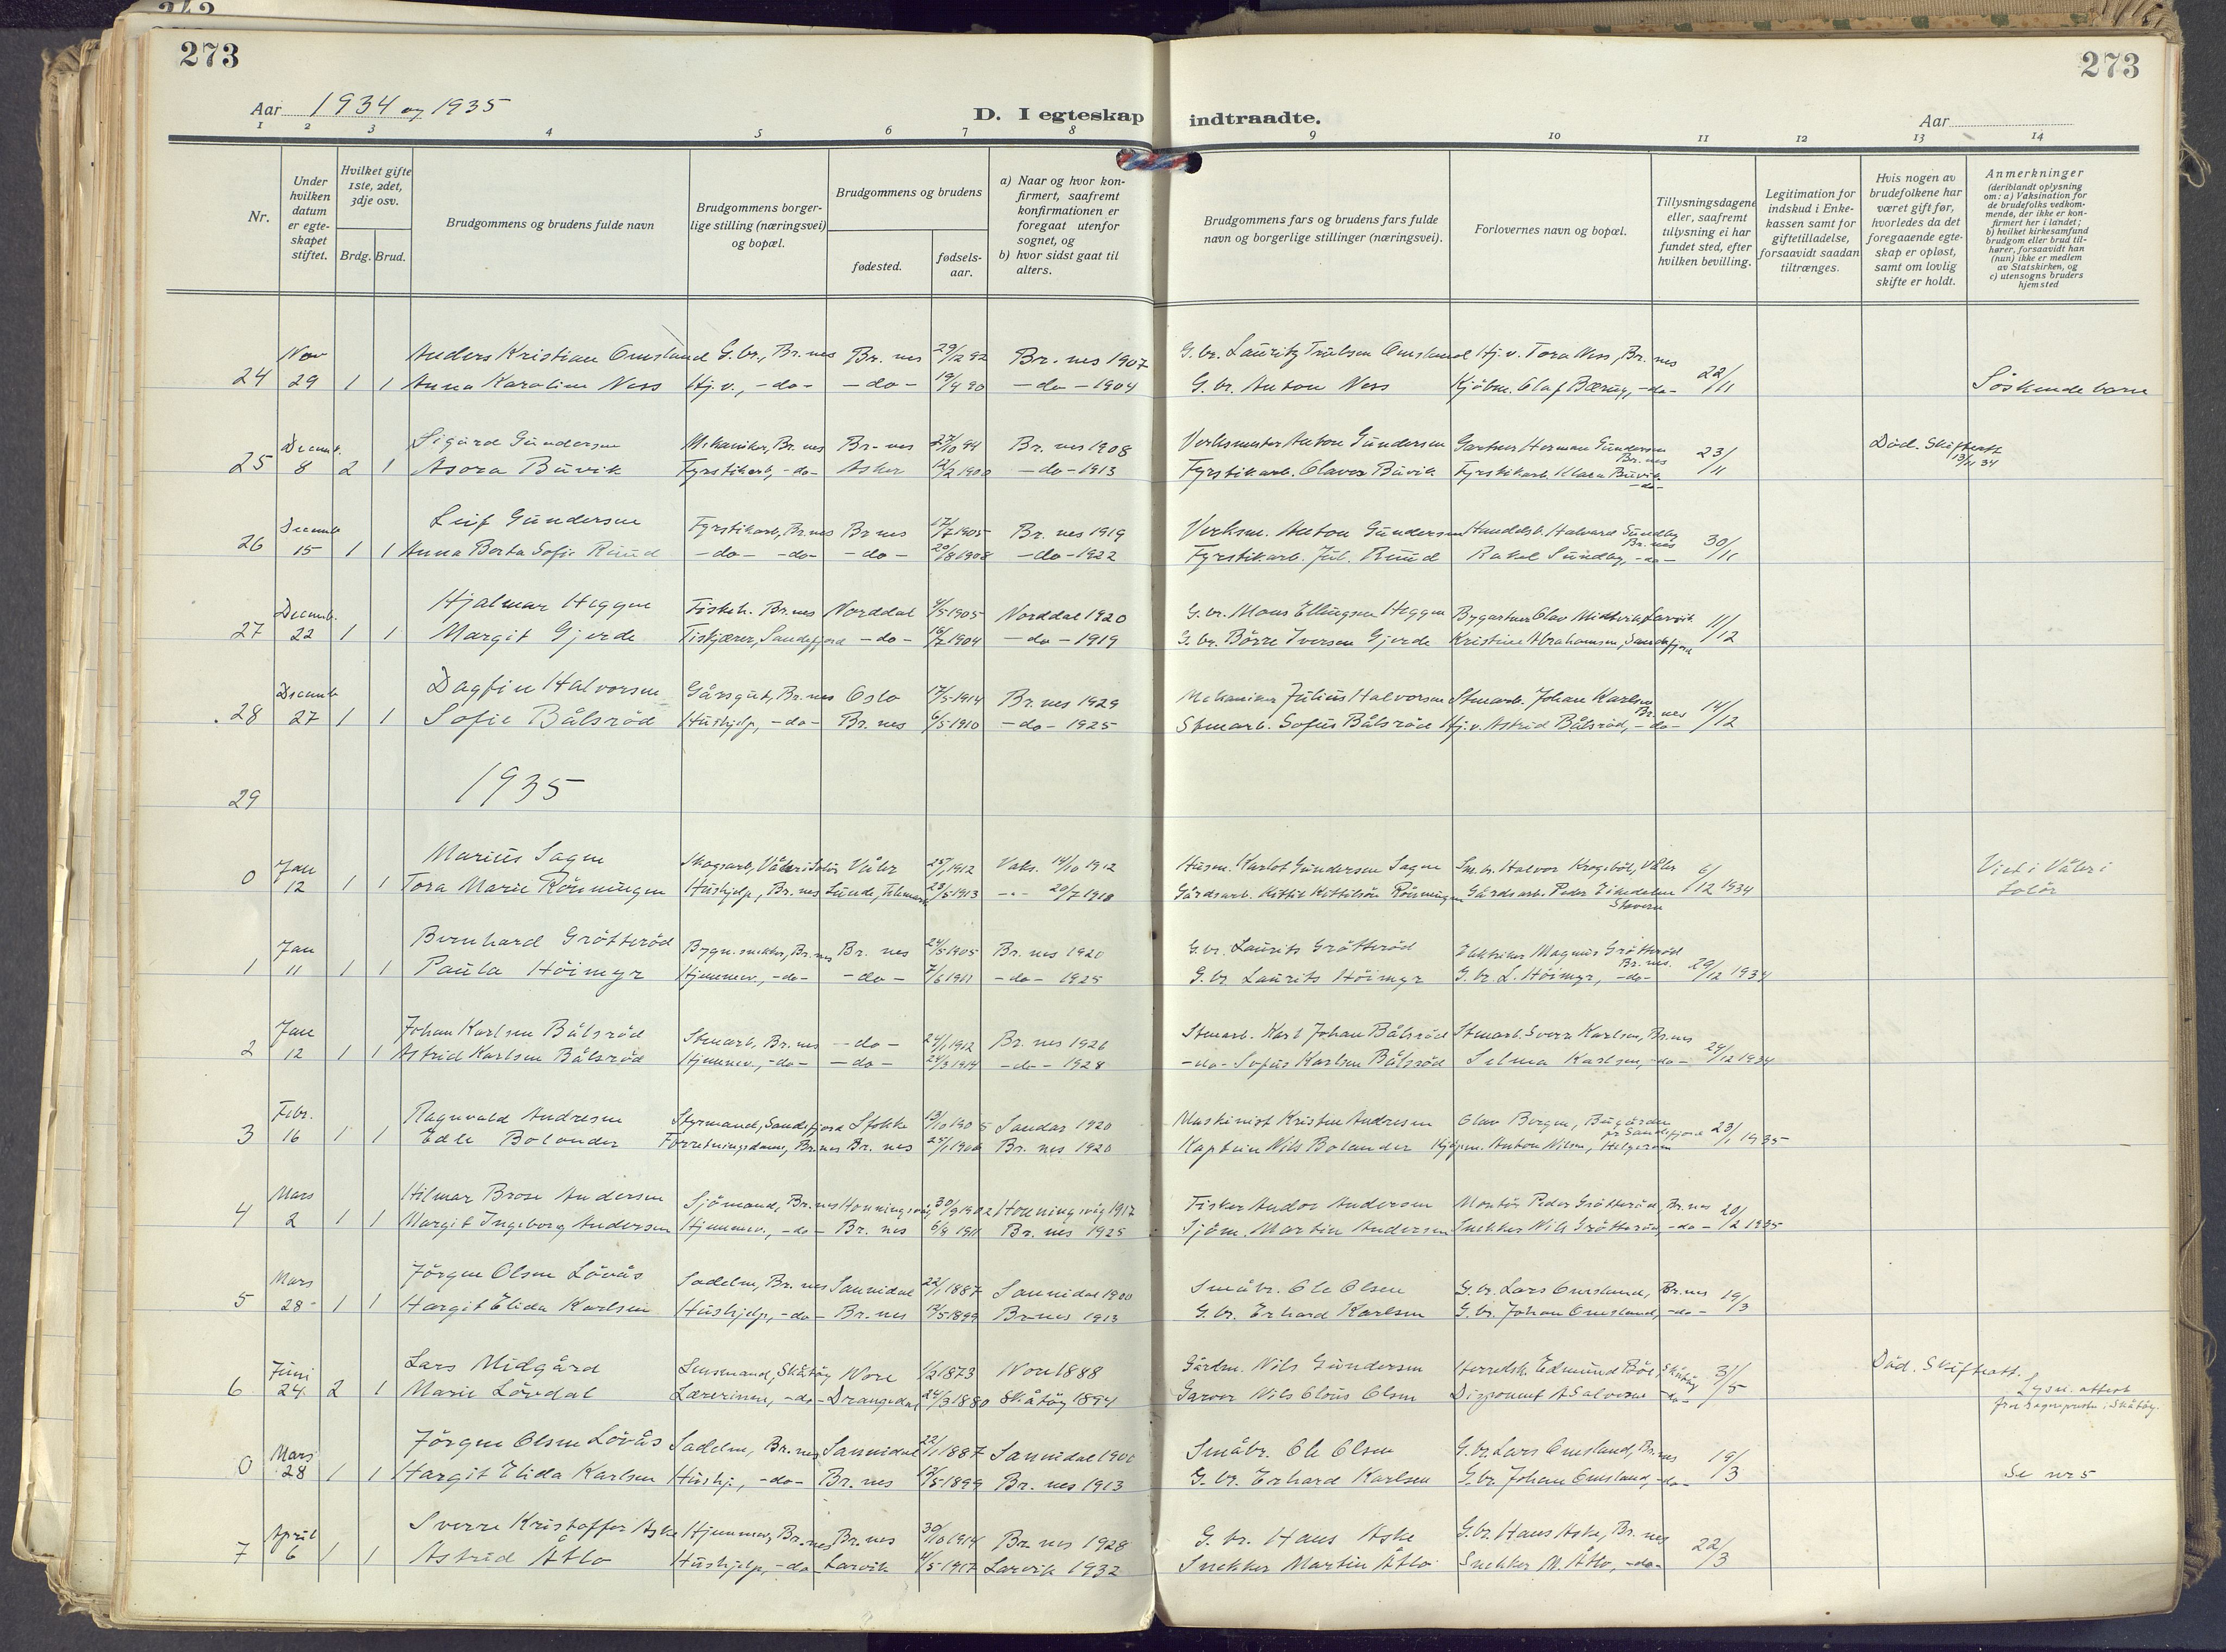 273
273
Aar 1934 og 1935
D. I egteskap indtraadte.
Aar
1 2 3 4 5 6 7 8 9 10 11 12 13 14
Nr.
Under hvilken datum er egteskapet stiftet.
Hvilket gifte 1ste, 2det, 3dje osv.
Brdg. Brud.
Brudgommens og brudens fulde navn
Brudgommens borgerlige stilling (næringsvei) og bopæl.
Brudgommens og brudens
fødested.
fødselsaar.
a) Naar og hvor konfirmert, saafremt konfirmationen er foregaat utenfor sognet, og
b) hvor sidst gaat til alters.
Brudgommens fars og brudens fars fulde navn og borgerlige stillinger (næringsvei).
Forlovernes navn og bopæl.
Tillysningsdagene eller, saafremt tillysning ei har fundet sted, efter hvilken bevilling.
Legitimation for indskud i Enkekassen samt for giftetilladelse, forsaavidt saadan tiltrænges.
Hvis nogen av brudefolkene har været gift før, hvorledes da det foregaaende egteskap er opløst, samt om lovlig skifte er holdt.
Anmerkninger (deriblandt oplysning om: a) Vaksination for de brudefolks vedkommende, der ikke er konfirmert her i landet; b) hvilket kirkesamfund brudgom eller brud tilhører, forsaavidt han (hun) ikke er medlem av Statskirken, og c) utensogns bruders hjemsted
Nov Anders Kristian Omsland G.br., Br.nes Br. nes 29/12 92 Br. nes 1907 G. br. Lauritz Omsland Hj.v. Tora Ness, Br.nes
24 29 1 1 Anna Karoline Ness Hj.v., -do- -do- 19/4 90 -do- 1904 G. br. Anton Ness Kjöbm. Olaf Bærug, -do- 22/11 Söskendebarn
Decemb. Sigurd Gundersen Mekaniker, Br.nes Br. nes 27/10 94 Br. nes 1908 Verksmester Anton Gundersen Gartner Herman Gundersen Br.nes Död. Skifteatt. 13/11 34
25 8 2 1 Asora Buvik Fyrstikarb., -do- Asker 12/2 1900 -do- 1913 Fyrstikarb. Olaves Buvik Fyrstikarb. Klara Buvik -do- 23/11
Decemb. Leif Gundersen Fyrstikarb., Br.nes Br nes 17/7 1905 Br. nes 1919 Verksm. Anton Gundersen Handelsb. Halvard Sundby Br.nes
26 15 1 1 Anna Berta Sofie Ruud -do- -do- -do- 20/8 1908 -do- 1922 Fyrstikarb. Jul. Ruud Rakel Sundby, -do- 30/11
Decemb. Hjalmar Heggen Fiskeh. Br.nes Norddal 4/5 1905 Norddal 1920 G. br. Mons Ellingsen Heggen Bygartner Olav Larvik
27 22 1 1 Margit Gjerde Sandefjord -do- 16/7 1904 -do- 1919 G. br. Börre Iversen Gjerde Kristine Abrahamsen, Sandefjord 11/12
Decemb. Dagfin Halvorsen Gårsgut, Br.nes Oslo 17/5 1914 Br. nes 1929 Mekaniker Julius Halvorsen Stenarb. Johan Karlsen Br.nes
28 27 1 1 Sofie Bålsröd Hushjelp, -do- Br. nes 6/5 1910 -do- 1925 Stenarb. Sofus Bålsröd Hj.v. Astrid Bålsröd, -do- 14/12
29 1935
Jan Marius Sagen Skogsarb., Våler i Solör Våler 25/7 1912 Vaks. 14/10 1912 Husm. Karlot Gundersen Sagen Sm.br. Halvor Krogsböl, Våler Viet i Våler i Solör
0 12 1 1 Tora Marie Rönningen Hushjelp, Br.nes Lunde, Telemark 23/6 1913 -"- 20/7 1918 Gårdsarb. Kittil Kittilsön Rönningen Gårdsarb. Peder Stavern 6/12 1934
Jan Bernhard Grötteröd Bygn.snekker, Br.nes Br. nes 24/5 1905 Br. nes 1920 G. br. Laurits Grötteröd Elektriker Magnus Grötteröd Br.nes.
1 11 1 1 Paula Höimyr Hjemmev., -do- -do- 7/6 1911 -do- 1925 G. br. Laurits Höimyr G. br. L. Höimyr, -do- 29/12 1934
Jan Johan Karlsen Bålsröd Stenarb., Br.nes -do- 24/1 1912 Br. nes 1926 Stenarb. Karl Johan Bålsröd Stenarb. Sverre Karlsen, Br.nes
2 12 1 1 Astrid Karlsen Bålsröd Hjemmev., -do- -do- 24/3 1914 -do- 1928 -do- Sofus Karlsen Bålsröd Selma Karlsen, -do- 29/12 1934
Febr. Ragnvald Andresen Styrmand, Sandefjord Stokke 19/10 1905 Sandar 1920 Maskinist Kristen Andresen Olav Bergen, Bugården pr Sandefjord
3 16 1 1 Edle Bolander Forretningsdame, Br.nes Br. nes 25/1 1906 Br. nes 1920 Kaptein Nils Bolander Kjöpm. Anton Nilsen, Helgeroa 23/1 1935
Mars Hilmar Brose Andersen Sjömand, Br.nes Honningsvåg 30/9 1902 Honningsvåg 1917 Fisker Andor Andersen Montör Peder Grötteröd, Br.nes
4 2 1 1 Margit Ingeborg Andersen Hjemmev., -do- Br. nes 6/9 1911 Br. nes 1925 Sjöm. Martin Andersen Snekker Nils Grötteröd, -do- 20/2 1935
Mars Jörgen Olsen Lövås Sadelm., Br.nes Sannidal 22/1 1887 Sannidal 1900 Småbr. Ole Olsen G. br. Lars Omsland, Br.nes
5 28 1 1 Hargit Elida Karlsen Hushjelp., -do- Br. nes 19/5 1899 Br nes 1913 G. br. Erhard Karlsen G. br. Johan Omsland, -do- 19/3
Juni Lars Midgård Lensmand, Skåtöy Nore 1/2 1873 Nore 1888 Gårdm. Nils Gundersen Herredsk. Edmund Böe, Skåtöy Död. Skifteatt.
6 24 2 1 Marie Lövdal Lærerinne, -do- Drangedal 24/3 1880 Skåtöy 1894 Garver Nils Clous Olsen Disponent A Salvesen -do- 31/5 Lysn. attest fra sogneprest i Skåtöy.
Mars Jörgen Olsen Lövås Sadelm., Br.nes Sannidal 22/1 1887 Sannidal 1900 Småbr. Ole Olsen G. br. Lars Omsland, Br.nes
0 28 1 1 Hargit Elida Karlsen Hushj., -do- Br. nes 19/5 1899 Br. nes 1913 G. br. Erhard Karlsen G. br. Johan Omsland, -do- 19/3 Se nr 5
April Sverre Kristoffer Aske Hjemmev, Br.nes Br. nes 30/10 1914 Br. nes 1928 G. br. Hans Aske G. br. Hans Aske, Br. nes
7 6 1 1 Astrid Åtlo Hushjelp, -do- Larvik 4/5 1917 Larvik 1932 Snekker Martin Åtlo Snekker M. Åtlo, -do- 22/3